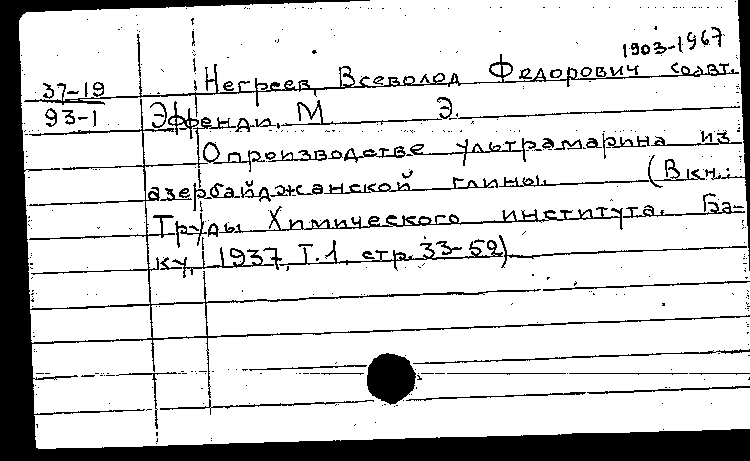 1903-1967
37-19 Негреев, Всеволод Федорович соавт.
93-1 Эффенди, М Э.
О производстве ультрамарина из
азербайджанской глины. (В кн.:
Труды Химического института. Ба-
ку, 1937, Т.1, стр. 33-52)